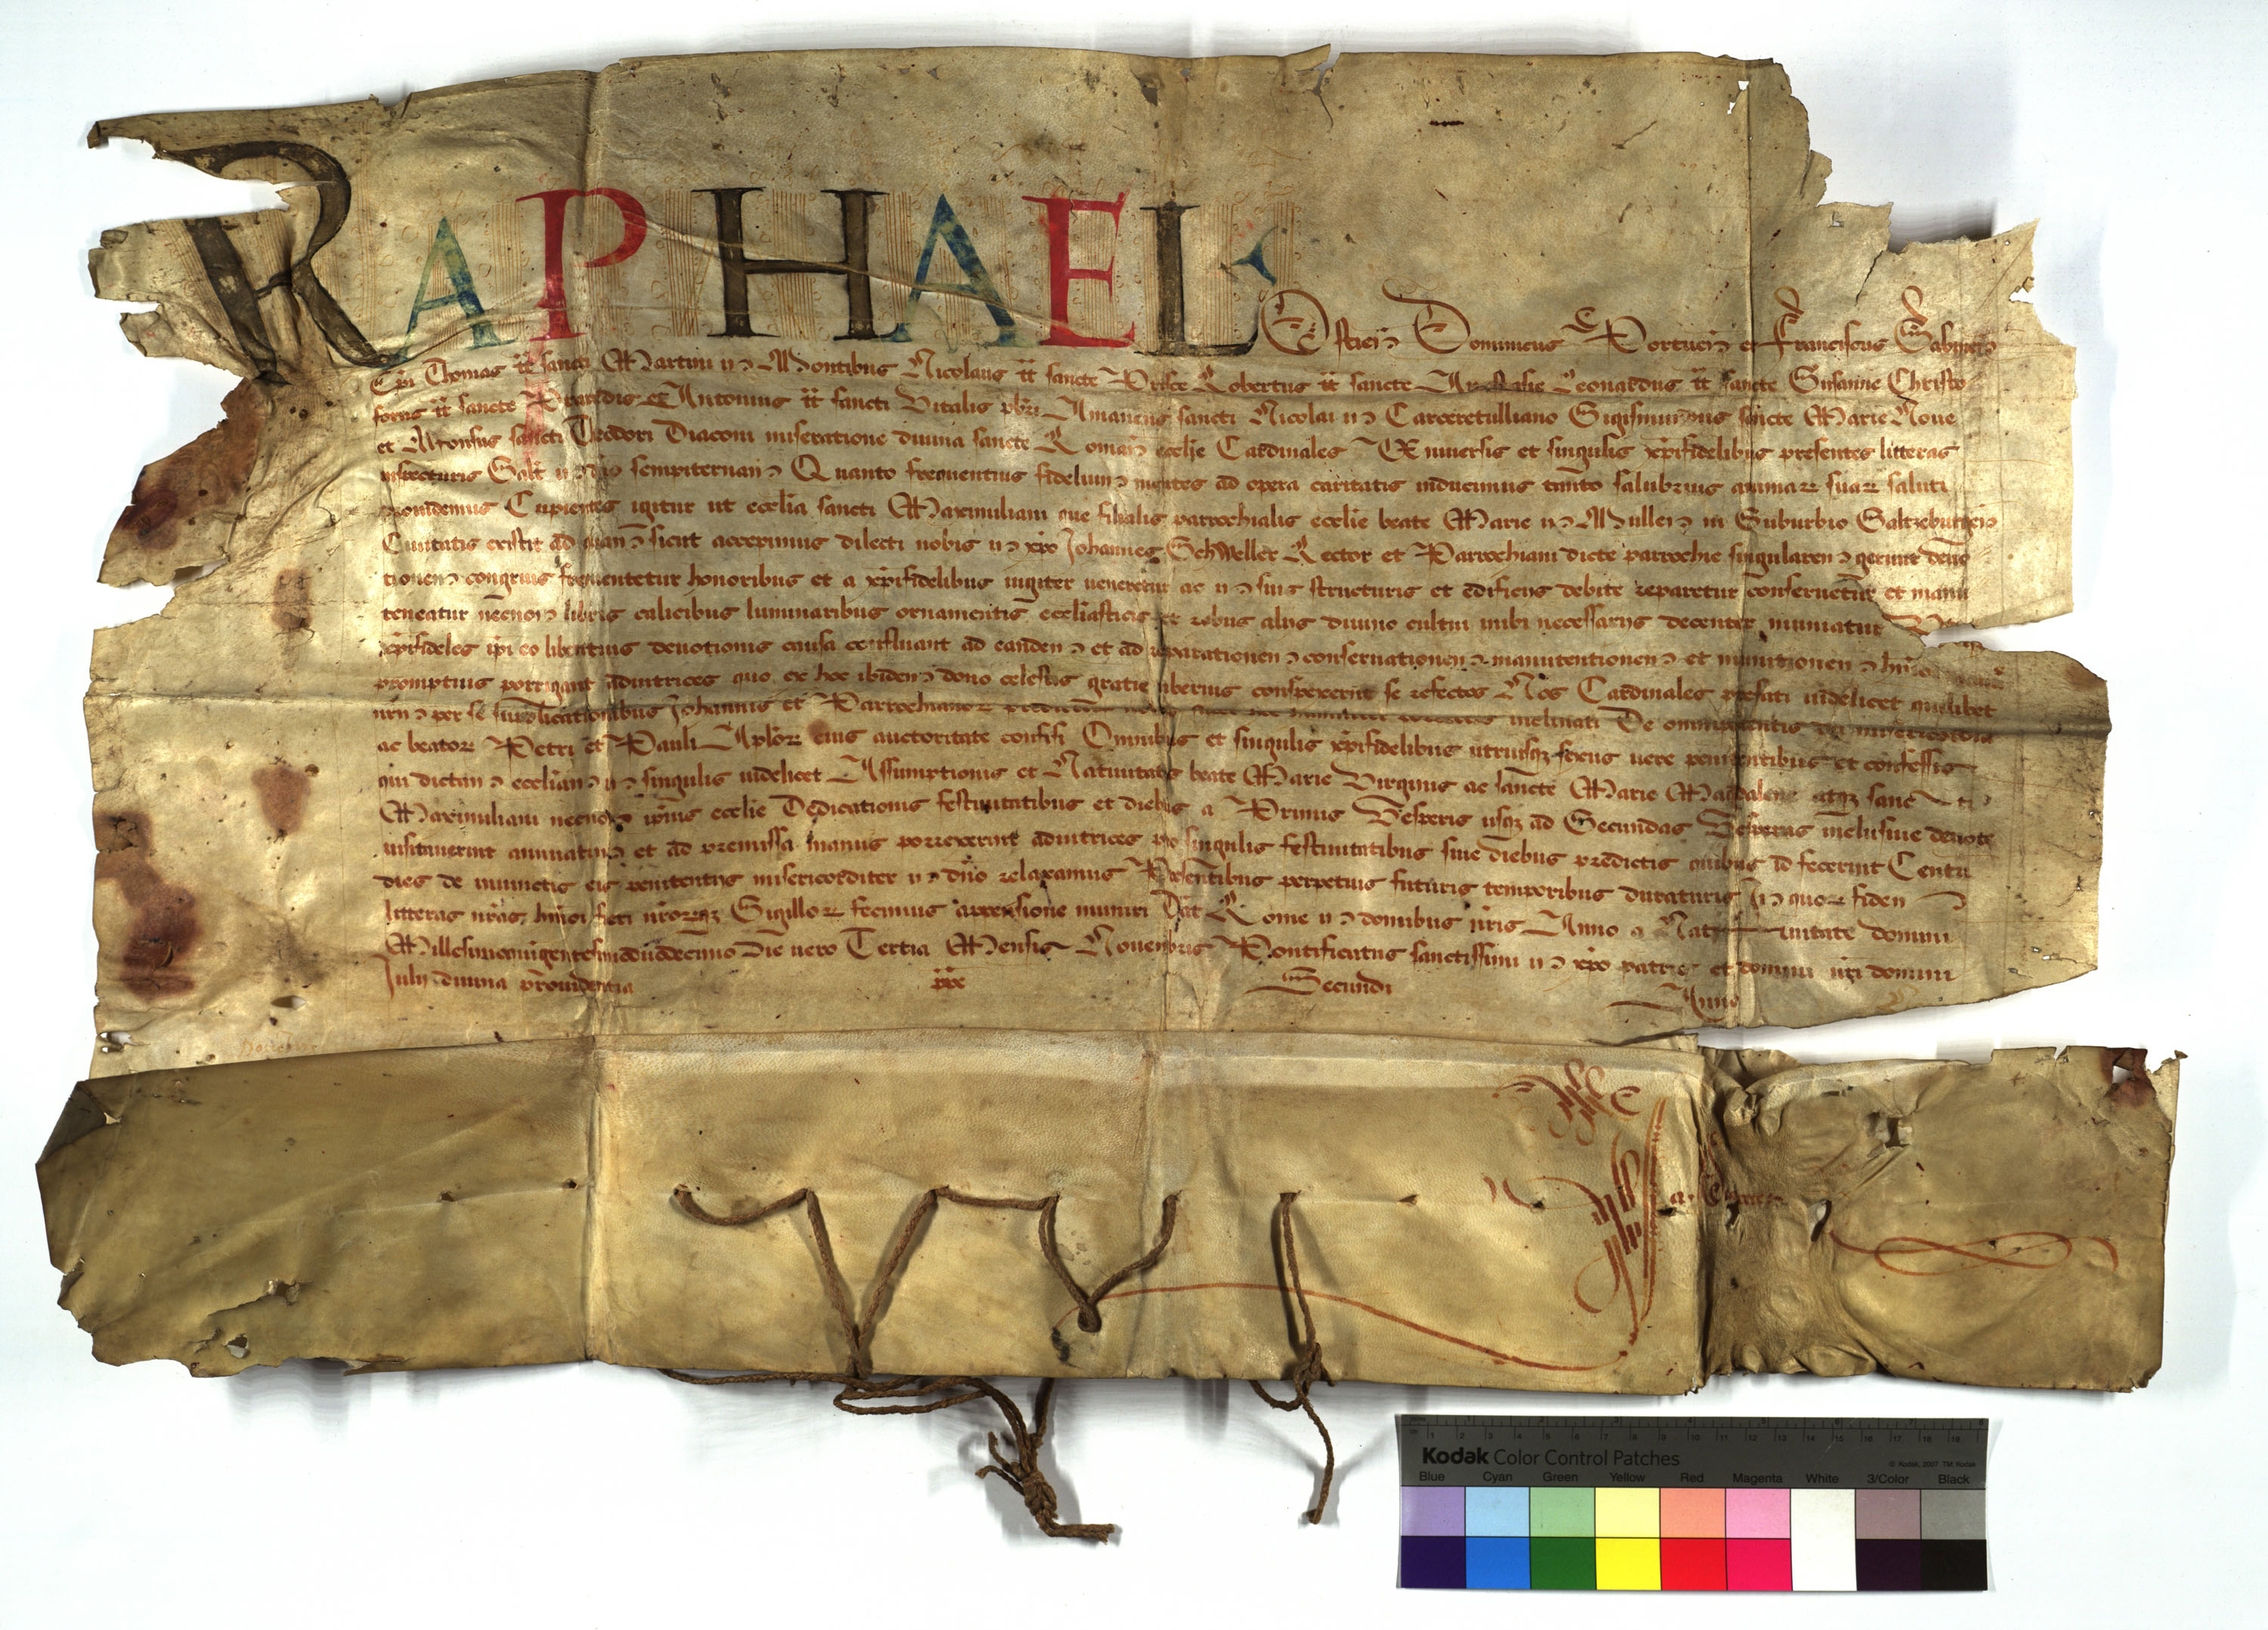 RAPHAEL
Ostien Dominicus Portuen et Franciscus Sabinen
Epi Thomas tt sancti Martini in Montibus Nicolaus tt sancte Prisce Robertus tt sancte Anastasie Leonardus tt sancte Susanne Christo
forus tt sancte Praxedis et Antonius tt sancti Vitalis pbri Amaneus sancti Nicolai in Carceretulliano Sigismundus sancte Marie Noue
et Alfonsus sancti Teodori Diaconi miseratione diuina sancte Romane ecclie Cardinales Vniuersis et singulis xpifidelibus presentes litteras
inspecturis Salt in dno sempiternam Quanto frequentius fidelium mentes ad opera caritatis inducimus tanto salubrius animar suar saluti
prouidemus Cupientes igitur ut ecclia sancti Maximiliani que filialis parrochialis ecclie beate Marie in Mullen in Suburbio Saltzeburgen
Ciuitatis existit ad quam sicut accepimus dilecti nobis in xpo Johannes Schweller Rector et Parrochiani dicte parrochie singularem gerunt deuo
tionem congruis frequentetur honoribus et a xpifidelibus iugiter ueneretur ac in suis structuris et edificijs debite reparetur conseruetur et manu
teneatur necnon libris calicibus luminaribus ornamentis eccliasticis et rebus alijs diuino cultui inibi necessarijs decenter muniatur
xpifideles ipi eo libentius deuotionis causa confluant ad eandem et ad reparationem conseruationem manutentionem et munitionem hmoi
promptius porrigant adiutrices quo ex hoc ibidem dono celestis gratie uberius conspexerint se refectos Nos Cardinales prefati uidelicet quilibet
nrm per se supplicationibus Johannis et Parrochianor inclinati De omnipotentis dei misericordia
ac beator Petri et Pauli Aplor eius auctoritate confisi Omnibus et singulis xpifidelibus utriusqz sexus uere penitentibus et confessis
qui dictam eccliam in singulis uidelicet Assumptionis et Natiuitatis beate Marie Virginis ac sancte Marie Magdalene atqz sancti
Maximiliani necnon ipius ecclie Dedicationis festiuitatibus et diebus a Primis Vesperis usqz ad Secundas Vesperas inclusiue deuote
uisitauerint annuatim et ad premissa manus porrexerint adiutrices pro singulis festiuitatibus siue diebus predictis quibus id fecerint Centu
dies de iniunctis eis penitentijs misericorditer in dno relaxamus Presentibus perpetuis futuris temporibus duraturis In quor fidem
litteras nras hmoi fieri nrorqz Sigillor fecimus appensione muniri Dat Rome in domibus nris Anno a Natiuitate domini
Millesimoquingentesimoduodecimo Die uero Tertia Mensis Nouembris Pontificatus sanctissimi in xpo patris et domini nri domini
Julij diuina prouidentia ppe Secundi Anno